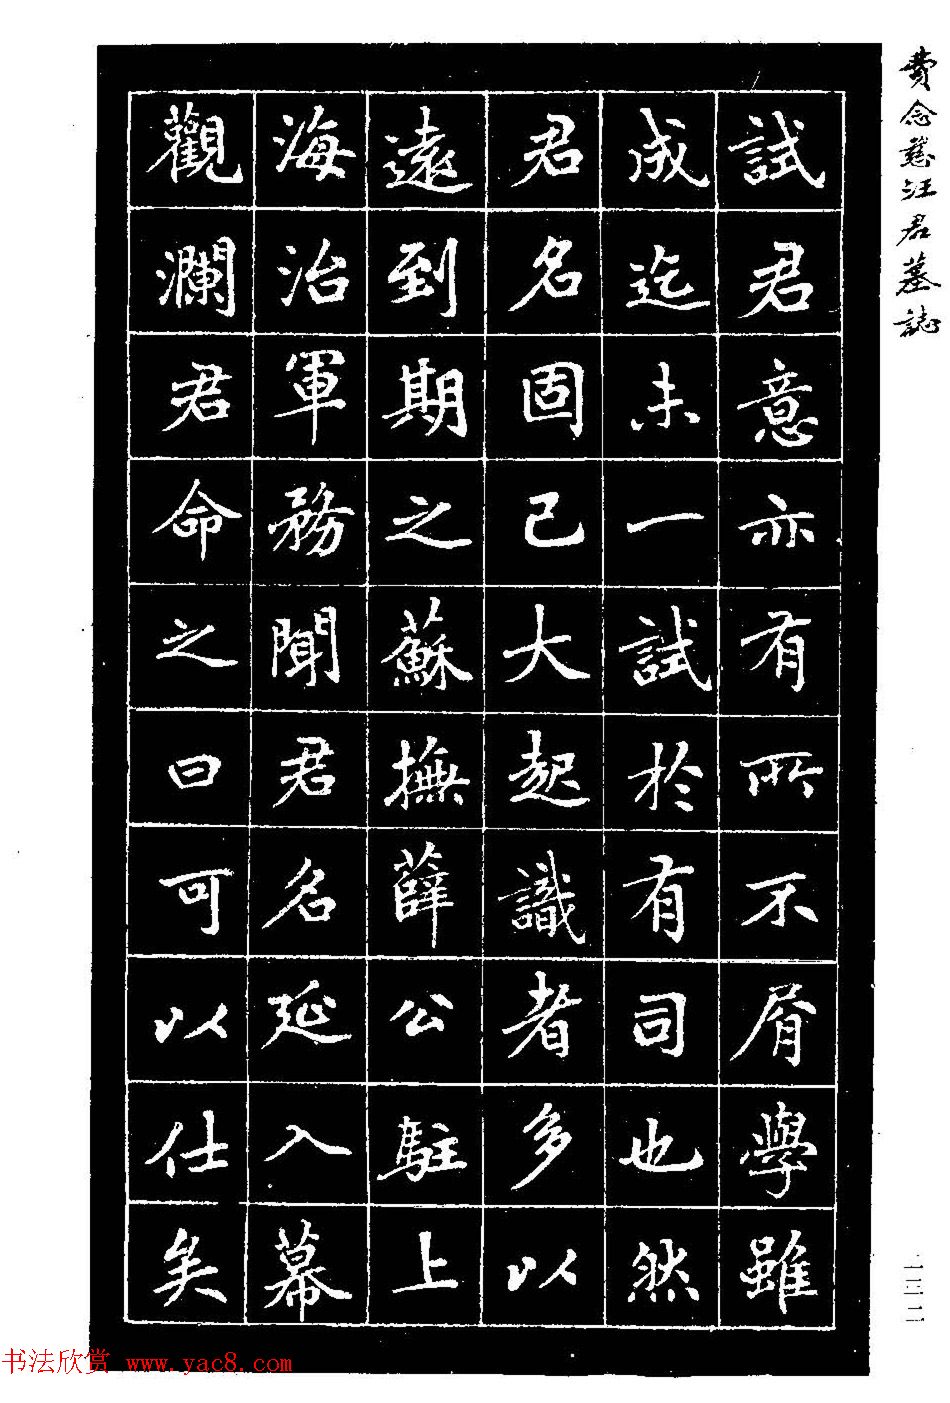 費念慈汪君墓誌
試君意亦有所不屑學雖
成迄未一試於有司也然
君名固已大起識者多以
遠到期之蘇撫薛公駐上
海治軍務聞君名延入幕
觀瀾君命之曰可以仕矣
一三二
书法欣赏 www.yac8.com